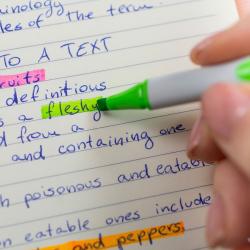 minology
les of the term.
TO A TEXT
fruits
definitious
s a fleshy
d from a
and containing one
h poisonous and eatable
n eatable ones include
and peppers